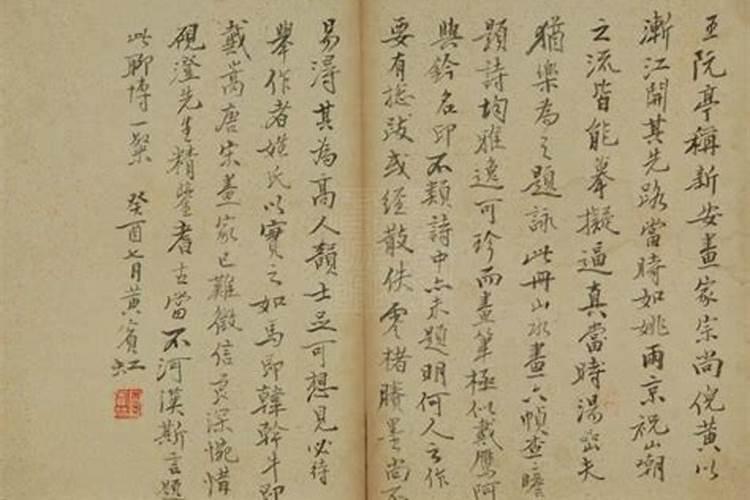 王阮亭稱新安畫家崇尚倪黃以
漸江開其先路當時如姚雨京祝山嘲
之流皆能摹擬逼真當時湯巖夫
猶樂為之題詠此冊山水畫六幀查二瞻
題詩均雅逸可珍而畫筆極似戴鷹阿
與鈐名印不類詩中亦未題明何人之作
要有総跋或經散佚零楮賸墨尚不
易得其為高人韻士足可想見必待
舉作者姓氏以實之如馬即韓幹牛即
戴嵩唐宋畫家已難徵信良深惋惜
硯澄先生精鑒耆古當不河漢斯言題
此聊博一粲 癸酉七月黃賓虹